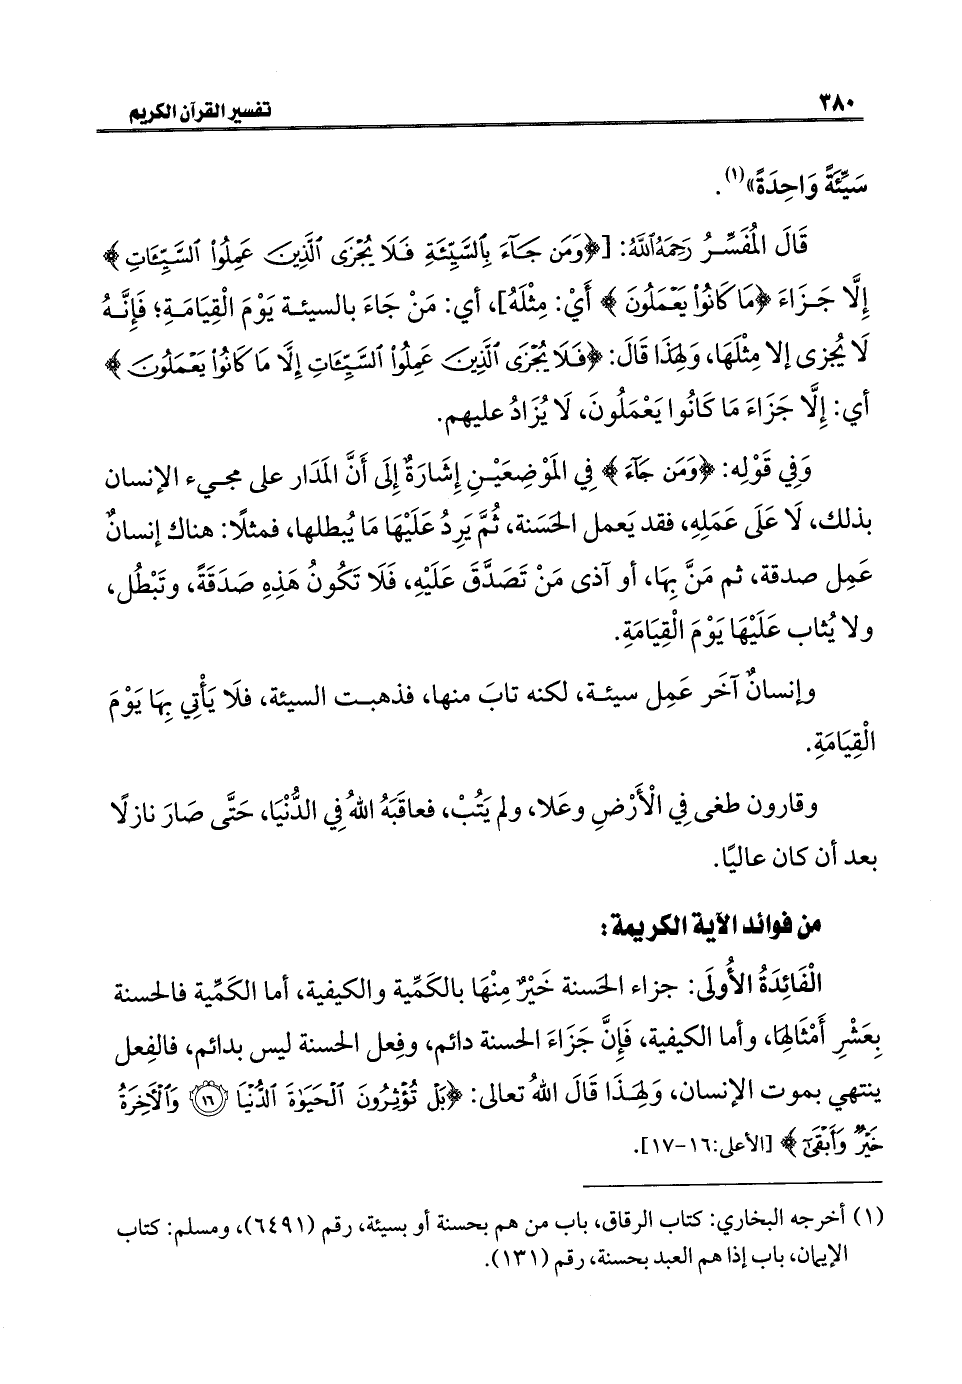 ٣٨٠ تفسير القرآن الكريم
سَيِّئَةً وَاحِدَةً»(١).
قَالَ الْمُفَسِّرُ رَحِمَهُ اللَّهُ: [﴿وَمَن جَآءَ بِٱلسَّيِّئَةِ فَلَا يُجْزَى ٱلَّذِينَ عَمِلُوا۟ ٱلسَّيِّـَٔاتِ﴾
إِلَّا جَزَاءَ ﴿مَا كَانُوا۟ يَعْمَلُونَ﴾ أَيْ: مِثْلَهُ]، أي: مَنْ جَاءَ بالسيئة يَوْمَ الْقِيَامَةِ؛ فَإِنَّهُ
لَا يُجزى إلا مِثْلَهَا، وَلِهَذَا قَالَ: ﴿فَلَا يُجْزَى ٱلَّذِينَ عَمِلُوا۟ ٱلسَّيِّـَٔاتِ إِلَّا مَا كَانُوا۟ يَعْمَلُونَ﴾
أي: إِلَّا جَزَاءَ مَا كَانُوا يَعْمَلُونَ، لَا يُزَادُ عليهم.
وَفِي قَوْلِه: ﴿وَمَن جَآءَ﴾ فِي الْمَوْضِعَيْنِ إِشَارَةٌ إِلَى أَنَّ الْمَدَار على مجيء الإنسان
بذلك، لَا عَلَى عَمَلِهِ، فقد يَعمل الحَسَنة، ثُمَّ يَرِدُ عَلَيْهَا مَا يُبطلها، فمثلًا: هناك إنسانٌ
عَمِل صدقة، ثم مَنَّ بِهَا، أو آذى مَنْ تَصَدَّقَ عَلَيْهِ، فَلَا تَكُونُ هَذِهِ صَدَقَةً، وتَبْطُل،
ولا يُثاب عَلَيْهَا يَوْمَ الْقِيَامَةِ.
وإنسانٌ آخَر عَمِل سيئة، لكنه تابَ منها، فذهبت السيئة، فلَا يَأْتِي بِهَا يَوْمَ
الْقِيَامَةِ.
وقارون طغى فِي الْأَرْضِ وعَلا، ولم يَتُبْ، فعاقَبَهُ اللهُ فِي الدُّنْيَا، حَتَّى صَارَ نازلًا
بعد أن كان عاليًا.
من فوائد الآية الكريمة:
الْفَائِدَةُ الأُولَى: جزاء الحَسنة خَيْرٌ مِنْهَا بالكَمِّية والكيفية، أما الكَمِّية فالحسنة
بِعَشْرِ أَمْثَالِهَا، وأما الكيفية، فَإِنَّ جَزَاءَ الحسنة دائم، وفِعل الحسنة ليس بدائم، فالفِعل
ينتهي بموت الإنسان، وَلِهَذَا قَالَ اللهُ تعالى: ﴿بَلْ تُؤْثِرُونَ ٱلْحَيَوٰةَ ٱلدُّنْيَا (١٦) وَٱلْـَٔاخِرَةُ
خَيْرٌ وَأَبْقَىٰٓ﴾ [الأعلى:١٦-١٧].
(١) أخرجه البخاري: كتاب الرقاق، باب من هم بحسنة أو بسيئة، رقم (٦٤٩١)، ومسلم: كتاب
الإيمان، باب إذا هم العبد بحسنة، رقم (١٣١).